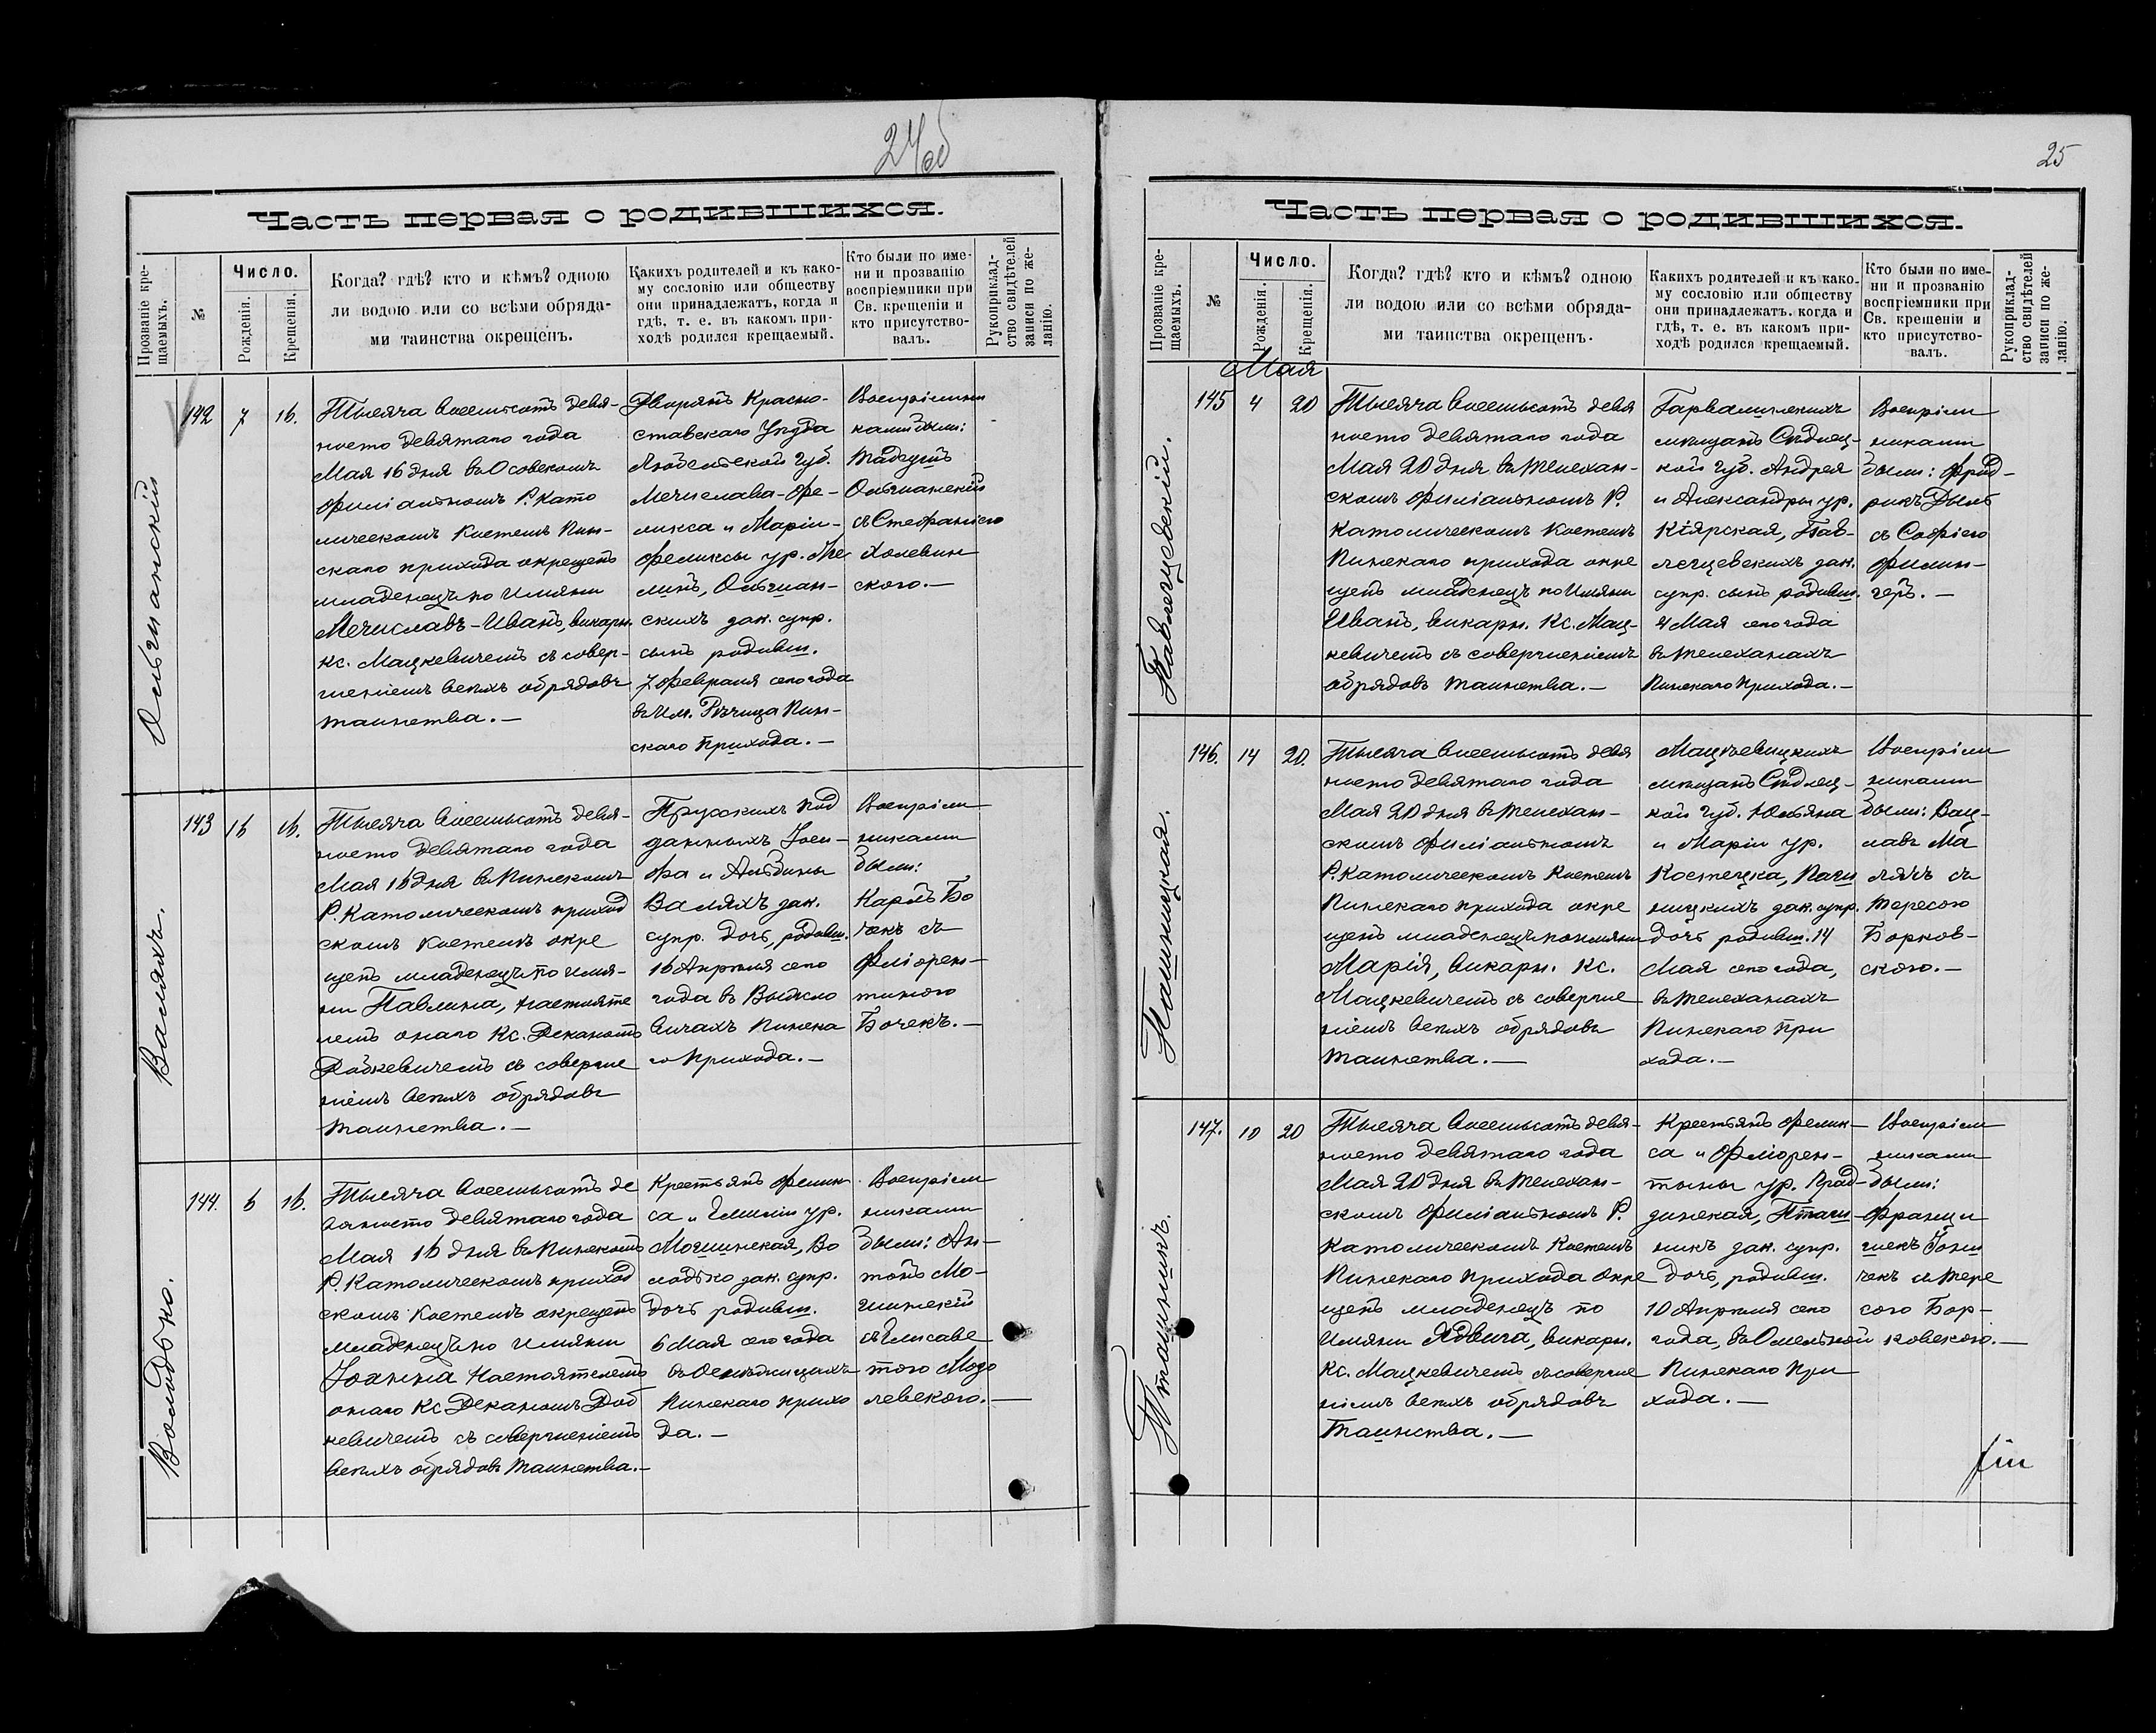 24об
Часть первая о родившихся.
Прозваніе кре-
щаемыхъ.
№
Число.
Рожденія.
Крещенія.
Когда? гдѣ? кто и кѣмъ? одною
ли водою или со всѣми обряда-
ми таинства окрещенъ.
Какихъ родителей и къ како-
му сословію или обществу
они принадлежатъ, когда и
гдѣ, т. е. въ какомъ при-
ходѣ родился крещаемый.
Кто были по име-
ни и прозванію
воспріемники при
Св. крещеніи и
кто присутство-
валъ.
Рукоприклад-
ство свидѣтелей
записи по же-
ланію.
Ольшанскій
142
7
16.
Тысяча восемьсотъ девя-
носто девятаго года
Мая 16 дня въ Осовскомъ
филіальномъ Р. Като
лическомъ Костелѣ Пин-
скаго прихода окрещенъ
младенецъ по имяни
Мечиславъ-Иванъ, викарн.
Кс. Мацкевичемъ съ совер-
шеніемъ всѣхъ обрядовъ
таинства.—
Дворянъ Красно-
ставскаго Уѣзда
Люблинской губ.
Мечислава-Фе-
ликса и Маріи-
Феликсы ур.
Ольшан-
скихъ зак. супр.
сынъ родивш.
7 Февраля сего года
въ им. Рѣчица Пин-
скаго прихода.—
Воспріемни
ками были:
Тадеушъ
Ольшанскій
съ Стефаніею
Холевин
скою.—
Валяхъ.
143
16
16.
Тысяча восемьсотъ девя-
носто девятаго года
Мая 16 дня въ Пинскомъ
Р. Католическомъ приход
скомъ Костелѣ окре
щенъ младенецъ по имя-
ни Павлина, настояте
лемъ онаго Кс. Деканомъ
съ соверше
ніемъ всѣхъ обрядовъ
таинства.—
Прусскихъ под
данныхъ Іоси-
фа и Альбины
Валяхъ зак.
супр. дочь, родивш.
16 Апрѣля сего
года въ
вичахъ Пинска
го прихода.—
Воспріем
никами
были:
Карлъ Бо
чекъ съ
Флiорен-
тиною
Бочекъ.—
Володько.
144.
6
16.
Тысяча восемьсотъ де
вяносто девятаго года
Мая 16 дня въ Пинскомъ
Р. Католическомъ приход
скомъ Костелѣ окрещенъ
младенецъ по имяни
Іоанна Настоятелемъ
онаго Кс Деканомъ
кевичемъ съ совершеніемъ
всѣхъ обрядовъ таинства.—
Крестьянъ Феликс
са и Емиліи ур.
Во
лодько зак. супр.
дочь родивш.
6 Мая сего года
въ
Пинскаго прихо
да.—
Воспріем
никами
были: Ан-
тонъ Мо-
съ Елисаве
тою
левскою.—
25
Часть первая о родившихся.
Прозваніе кре-
щаемыхъ.
№
Число.
Рожденія.
Крещенія.
Когда? гдѣ? кто и кѣмъ? одною
ли водою или со всѣми обряда-
ми таинства окрещен-
Какихъ родителей и къ како-
му сословію или обществу
они принадлежатъ. когда и
гдѣ, т. е. въ какомъ при-
ходѣ родился крещаемый.
Кто были по име-
ни и прозванію
воспріемники при
Св. крещеніи и
кто присутство-
валъ.
Рукоприклад-
ство свидѣтелей
записи по же-
ланію.
Мая
Павлецевскій.
145
4
20
Тысяча восемьсотъ девя
носто девятаго года
Мая 20 дня въ Телехан-
скомъ филіальномъ Р.
Католическомъ Костелѣ
Пинскаго прихода окре
щенъ младенецъ по имяни
Иванъ, викарн. Кс. Мац-
кевичемъ съ совершеніемъ
обрядовъ таинства.—
Гарволинскихъ
мѣщанъ Сѣдлец-
кой губ. Андрея
и Александры ур.
Кіярская, Пав-
лецевскихъ зак.
супр. сынъ родивш.
4 Мая сего года
въ Телеханахъ
Пинскаго прихода.—
Воспріем
никами
были: Фрид-
рихъ
съ Софіею
Филин-
геръ.—
Пашницкая.
146.
14
20.
Тысяча восемьсотъ девя
носто девятаго года
Мая 20 дня въ Телехан-
скомъ филіальномъ
Р. Католическомъ Костелѣ
Пинскаго прихода окре
щенъ младенецъ по имяни
Марія, викарн. Кс.
Мацкевичемъ съ соверше
ніемъ всѣхъ обрядовъ
таинства.—
Мацѣевицкихъ
мѣщанъ Сѣдлец-
кой губ. Юльяна
и Маріи ур.
Костецка, Паш
ницкихъ зак. супр.
дочь родивш. 14
Мая сего года,
въ Телеханахъ
Пинскаго при
хода.—
Воспріем
никами
были: Вац-
лавъ Ма
лякъ съ
Тересою
Борков-
скою.—
Пташникъ.
147.
10
20
Тысяча восемьсотъ девя-
носто девятаго года
Мая 20 дня въ Телехан-
скомъ филіальномъ Р.
Католическомъ Костелѣ
Пинскаго прихода окре
щенъ младенецъ по
имяни Ядвига, викарн.
Кс. Мацкевичемъ съ соверше
ніемъ всѣхъ обрядовъ
Таинства.—
Крестьянъ Феликс-
са и Флiорен-
тыны ур. Град-
зинская, Пташ-
никъ зак. супр.
дочь, родивш.
10 Апрѣля сего
года, въ Омельной
Пинскаго при
хода.—
Воспріем
никами
были:
Франци
шекъ
чекъ съ Тере
сою Бор-
ковскою.—